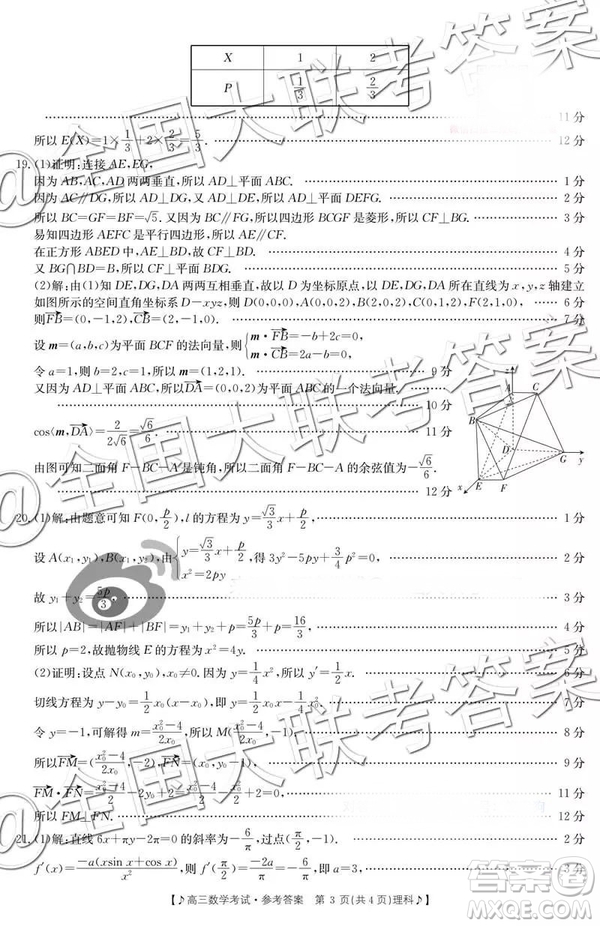 X 1 2
P 1/3 2/3
11 分
所以 E(X)=1×1/3+2×2/3=5/3. 12 分
19. (1)证明:连接 AE,EG,
因为 AB,AC,AD 两两垂直,所以 AD⊥平面 ABC. 1 分
因为 AC∥DG,所以 AD⊥DG,又 AD⊥DE,所以 AD⊥平面 DEFG. 2 分
所以 BC=GF=BF=√5. 又因为 BC∥FG,所以四边形 BCGF 是菱形,所以 CF⊥BG. 3 分
易知四边形 AEFC 是平行四边形,所以 AE∥CF.
在正方形 ABED 中,AE⊥BD,故 CF⊥BD. 4 分
又 BG∩BD=B,所以 CF⊥平面 BDG. 5 分
(2)解:由(1)知 DE,DG,DA 两两互相垂直,故以 D 为坐标原点,以 DE,DG,DA 所在直线为 x,y,z 轴建立
如图所示的空间直角坐标系 D-xyz,则 D(0,0,0),A(0,0,2),B(2,0,2),C(0,1,2),F(2,1,0), 6 分
则FB=(0,-1,2),CB=(2,-1,0). 7 分
设 m=(a,b,c)为平面 BCF 的法向量,则{m·FB=-b+2c=0, m·CB=2a-b=0,
令 a=1,则 b=2,c=1,所以 m=(1,2,1). 9 分
又因为 AD⊥平面 ABC,所以DA=(0,0,2)为平面 ABC 的一个法向量,
10 分
cos⟨m,DA⟩=2/(2√6)=√6/6. 11 分
由图可知二面角 F-BC-A 是钝角,所以二面角 F-BC-A 的余弦值为-√6/6.
12 分
z A C B D G y x E F
20. (1)解:由题意可知 F(0,p/2),l 的方程为 y=√3/3 x+p/2, 1 分
设 A(x₁,y₁),B(x₂,y₂),由{y=√3/3 x+p/2, x²=2py 得 3y²-5py+3/4 p²=0, 2 分
故 y₁+y₂=5p/3, 3 分
所以|AB|=|AF|+|BF|=y₁+y₂+p=5p/3+p=16/3, 4 分
所以 p=2,故抛物线 E 的方程为 x²=4y. 5 分
(2)证明:设点 N(x₀,y₀),x₀≠0. 因为 y=1/4 x²,所以 y′=1/2 x, 6 分
切线方程为 y-y₀=1/2 x₀(x-x₀),即 y=1/2 x₀x-1/4 x₀². 7 分
令 y=-1,可解得 m=(x₀²-4)/(2x₀),所以 M((x₀²-4)/(2x₀),-1). 8 分
9 分
11 分
所以 FM⊥FN. 12 分
21. (1)解:直线 6x+πy-2π=0 的斜率为-6/π,过点(π/2,-1). 2 分
f′(x)=-a(xsin x+cos x)/x²,则 f′(π/2)=-2a/π=-6/π,即 a=3, 3 分
【♪高三数学考试·参考答案 第 3 页(共 4 页)理科♪】
@全国大联考答案